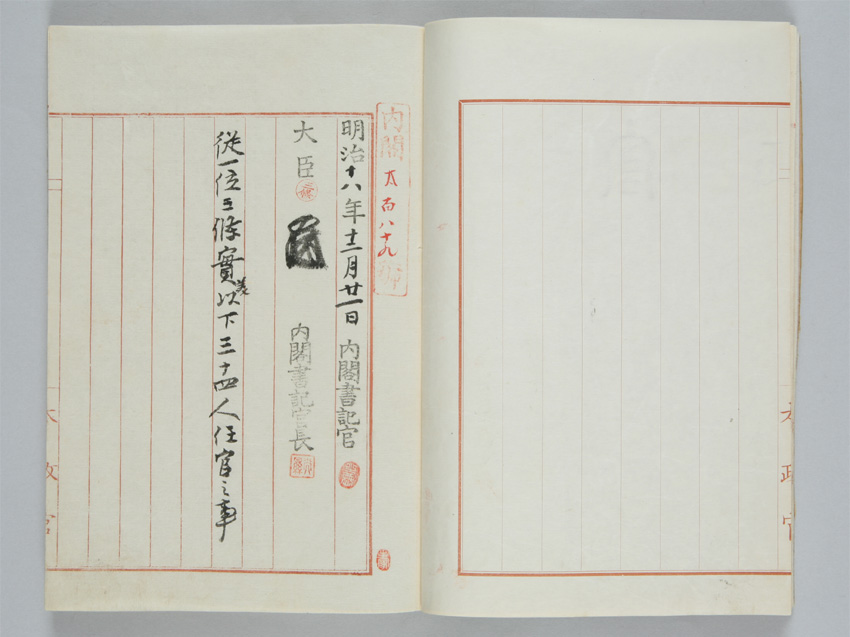 内閣 百八十九 號
明治十八年十二月廿一日 内閣書記官
大臣 内閣書記官長
従一位三條實美以下三十四人任官之事
太政官
太政官